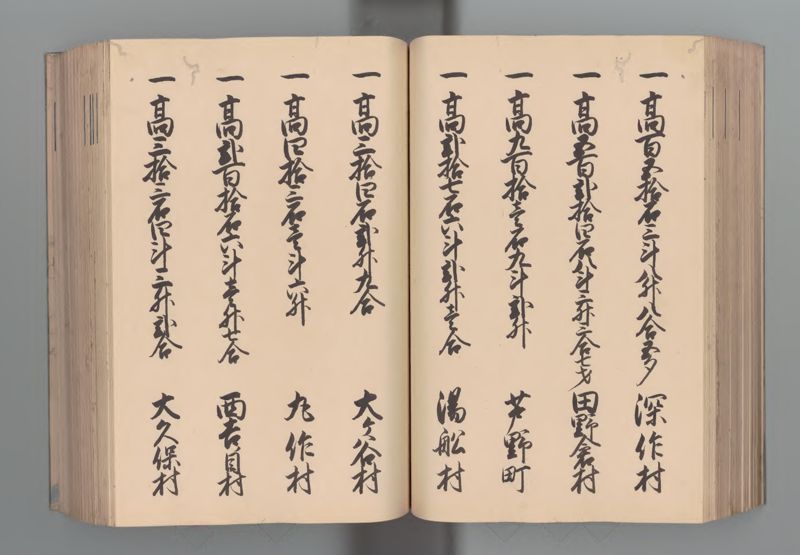 一 高百五拾石三斗八升八合五夕 深作村
一 高五百弐拾四石八斗三升三合七才 田野倉村
一 高九百拾壱石九斗弐升 芦野町
一 高弐拾七石六斗弐升壱合 湯舩村
一 高三拾四石弐升九合 大ケ谷村
一 高四拾三石壱斗六升 丸作村
一 高弐百拾石六斗壱升七合 西古目村
一 高三拾三石四斗三升弐合 大久保村